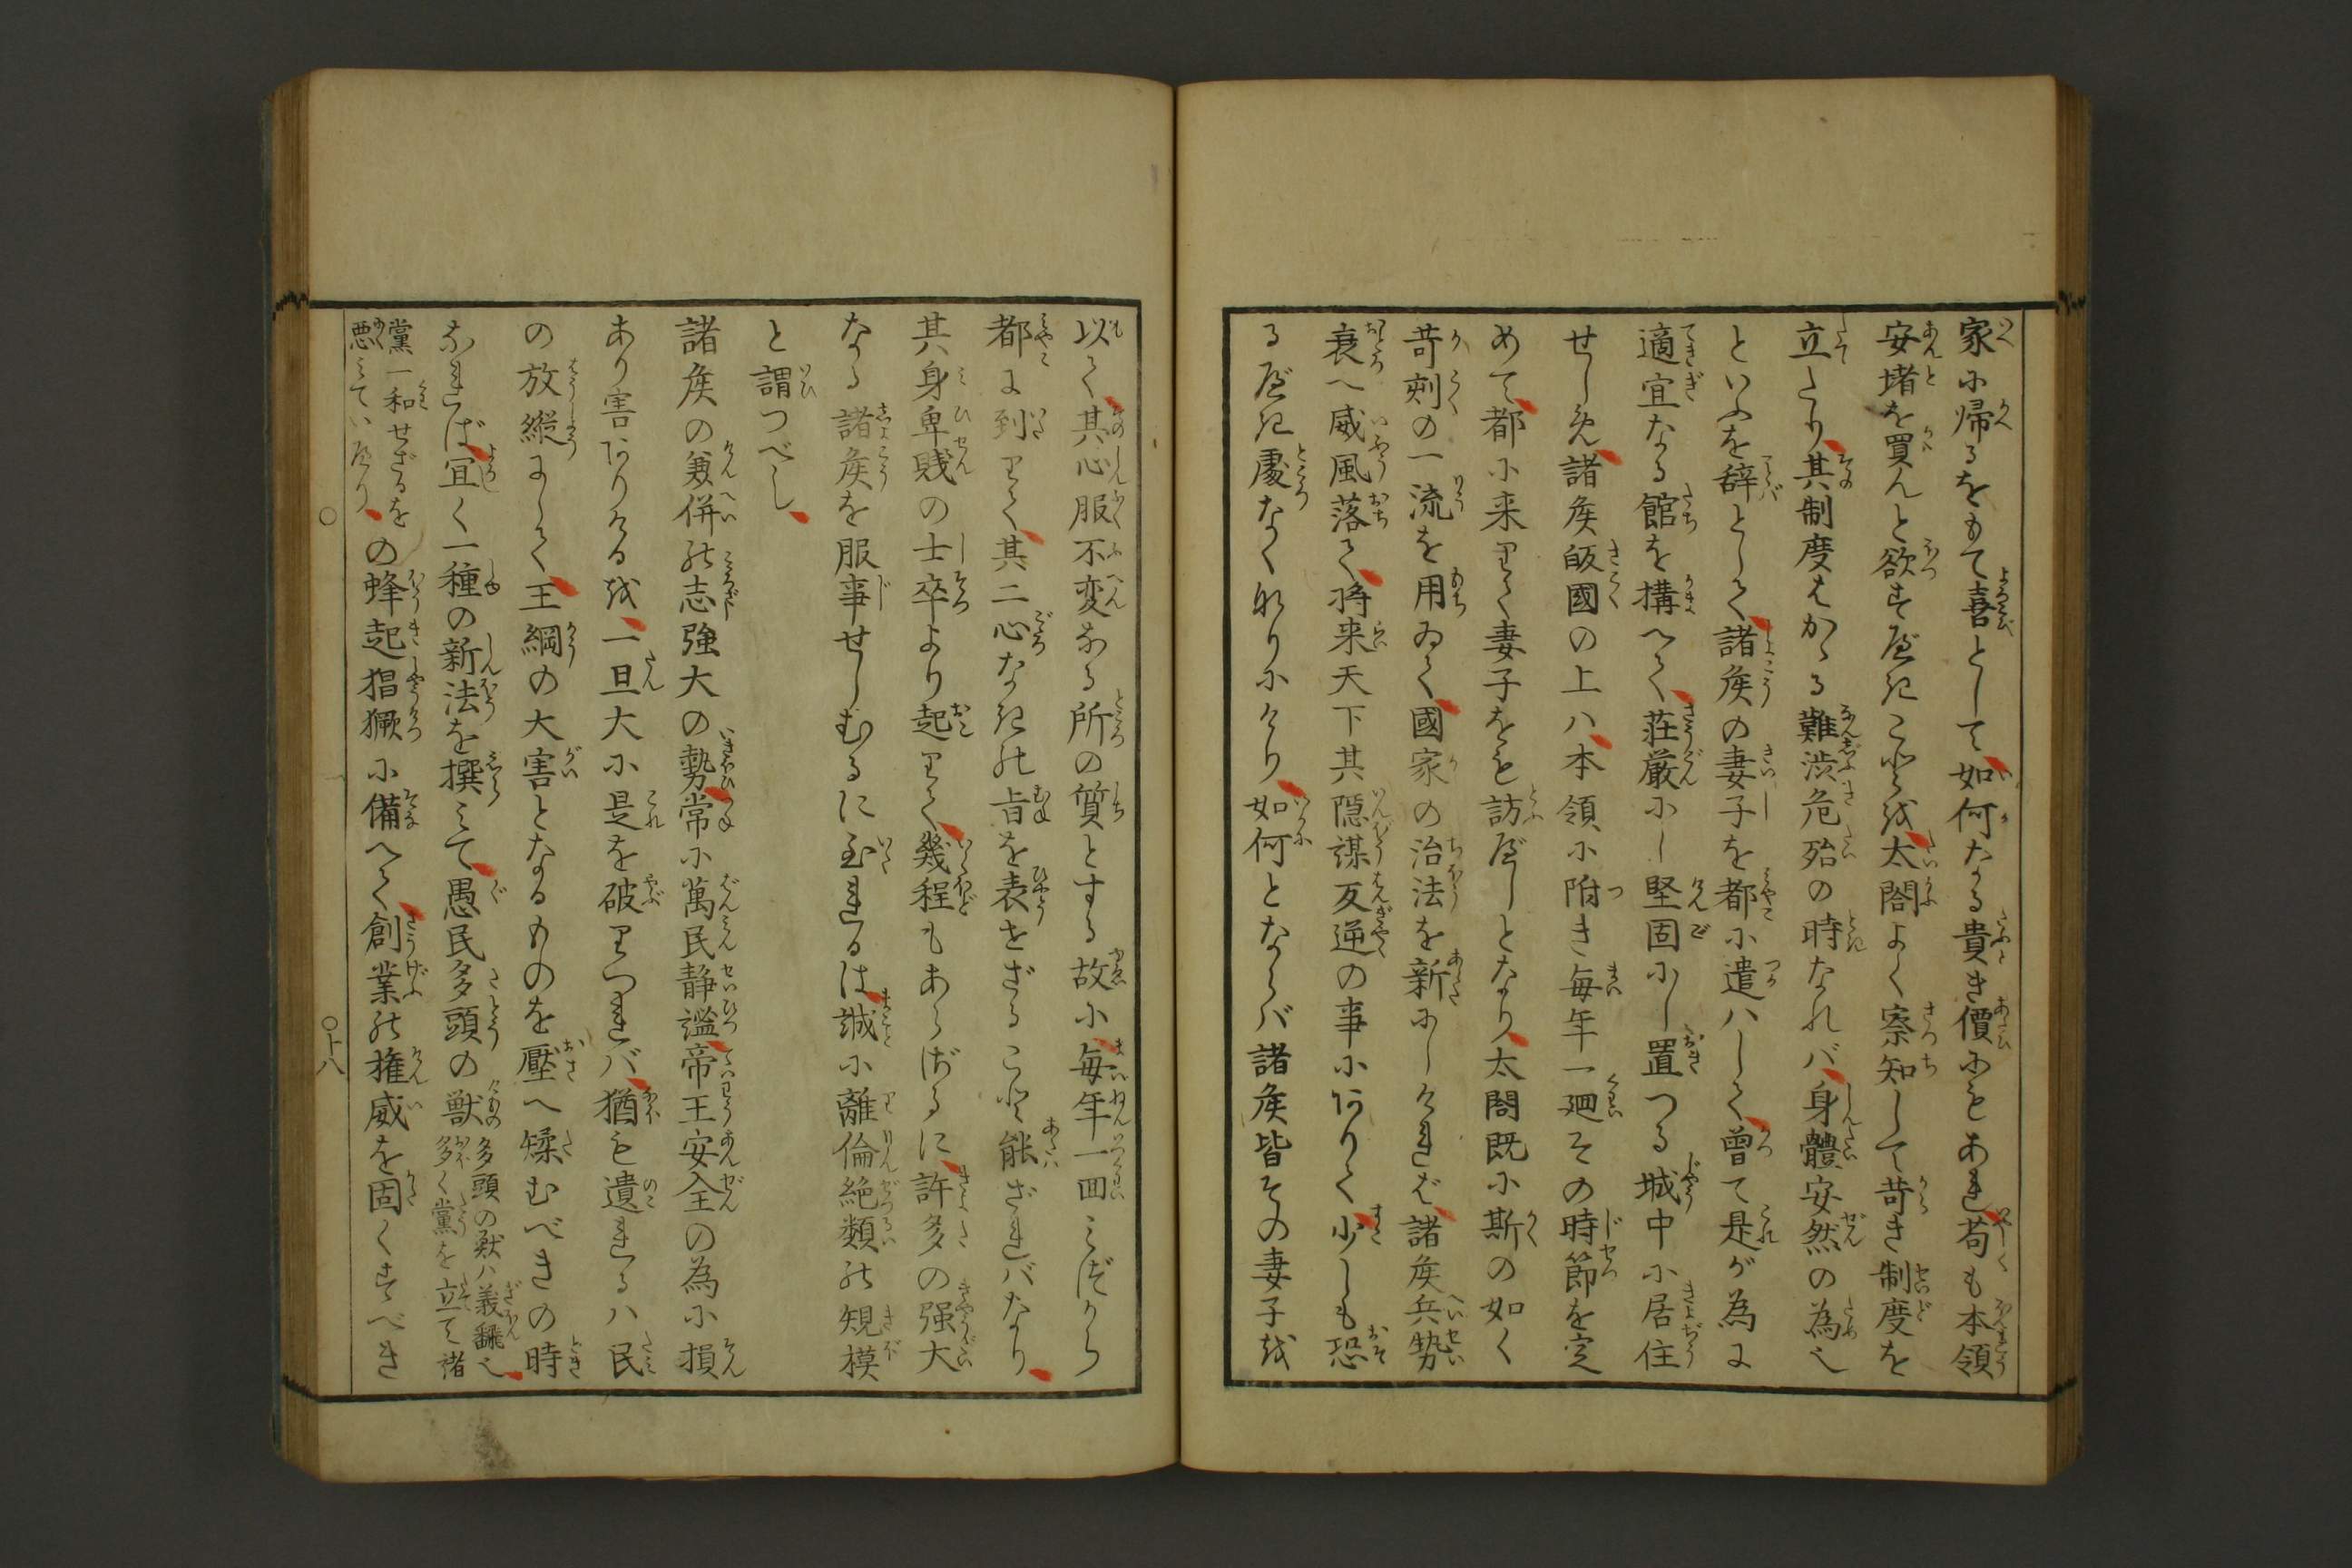 家に帰るをもて喜として、如何なる貴き價にもあれ、苟も本領
安堵を買んと欲すべきことを、太閤よく察知して苛き制度を
立たり、其制度はかゝる難渋危殆の時なれバ、身體安然の為也
といふを辞として、諸矦の妻子を都に遣ハして、曾て是が為に
適宜なる館を構へて、荘厳にし堅固にし置つる城中に居住
せしめ、諸矦皈國の上ハ、本領に附き毎年一廻その時節を定
めて、都に来りて妻子をも訪べしとなり、太閤既に斯の如く
苛刻の一流を用ゐて、國家の治法を新にしければ、諸矦兵勢
衰へ威風落て、将来天下其隠謀反逆の事にありて少しも恐
るべき處なくなりにけり、如何とならバ諸矦皆その妻子を
以て、其心服不変なる所の質とする故に、毎年一回みづから
都に到りて、其二心なきの旨を表せざること能ざれバなり、
其身卑賎の士卒より起りて、幾程もあらざるに、許多の强大
なる諸矦を服事せしむるに至れるは、誠に離倫絶類の䂓模
と謂つべし、
諸矦の兼併の志強大の勢、常に萬民静謐、帝王安全の為に損
あり害ありけるを、一旦大に是を破りつれバ、猶も遺れるハ民
の放縦にして、王綱の大害となるものを壓へ矯むべきの時
なれば、宜く一種の新法を撰みて、愚民多頭の獣多頭の獣ハ義飜也、
多く黨を立て諸
黨一和せざるを
悪みていへり、の蜂起猖獗に備へて、創業の権威を固くすべき
○ ○十八